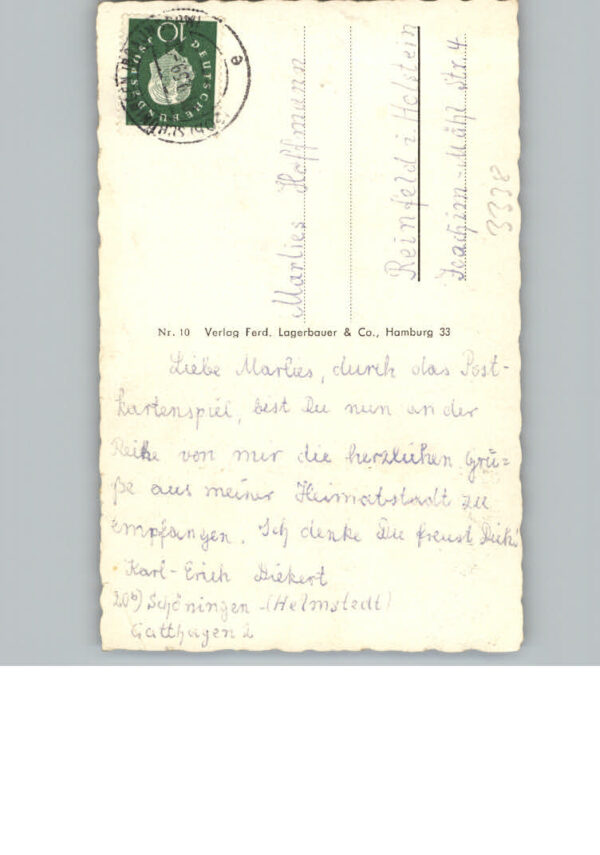 10
DEUTSCHE BUNDESPOST
e
Marlies Hoffmann
Reinfeld i. Holstein
Joachim-Mähl Str. 4
3338
Nr. 10 Verlag Ferd. Lagerbauer & Co., Hamburg 33
Liebe Marlies, durch das Post-
kartenspiel, bist Du nun an der
Reihe von mir die herzlichen Grü=
ße aus meiner Heimatstadt zu
empfangen. Ich denke Du freust Dich!
Karl-Erich Diekert
(20b) Schöningen-(Helmstedt)